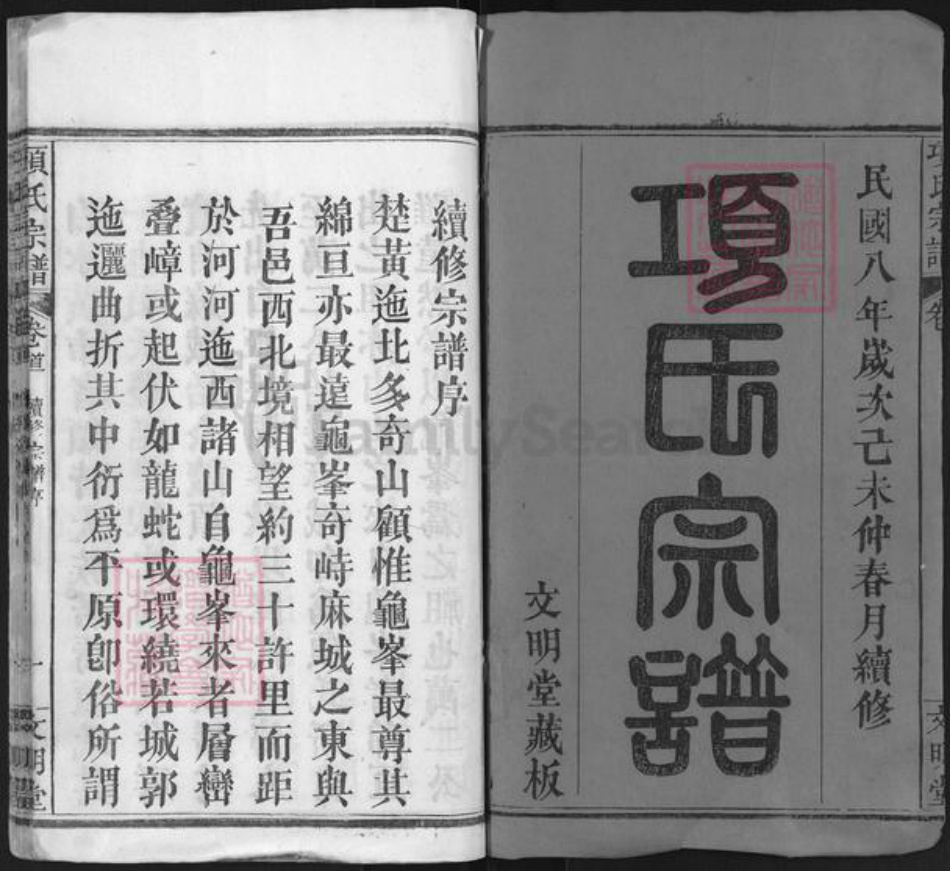 民國八年歲次己未仲春月續修
項氏宗譜
文明堂藏板
續修宗譜序
楚黃迤北多奇山顧惟龜峯最尊其
綿亘亦最遠龜峯奇峙麻城之東與
吾邑西北境相望約三十許里而距
於河河迤西諸山自龜峯來者層巒
疊嶂或起伏如龍蛇或環繞若城郭
迤邐曲折其中衍爲平原卽俗所謂
項氏宗譜 卷首 續修宗譜序 一 文明堂
FamilySearch